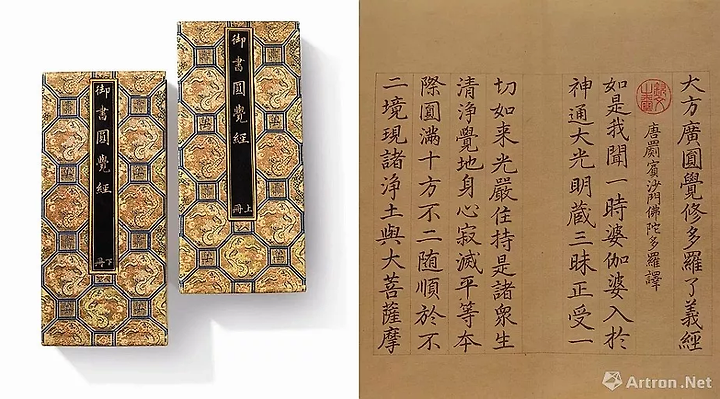 御書圓覺經
下冊
御書圓覺經
上冊
大方廣圓覺修多羅了義經
唐罽賓沙門佛陀多羅譯
如是我聞一時婆伽婆入於
神通大光明藏三昧正受一
切如来光嚴住持是諸衆生
清淨覺地身心寂滅平等本
際圓滿十方不二随順於不
二境現諸淨土與大菩薩摩
Artron.Net